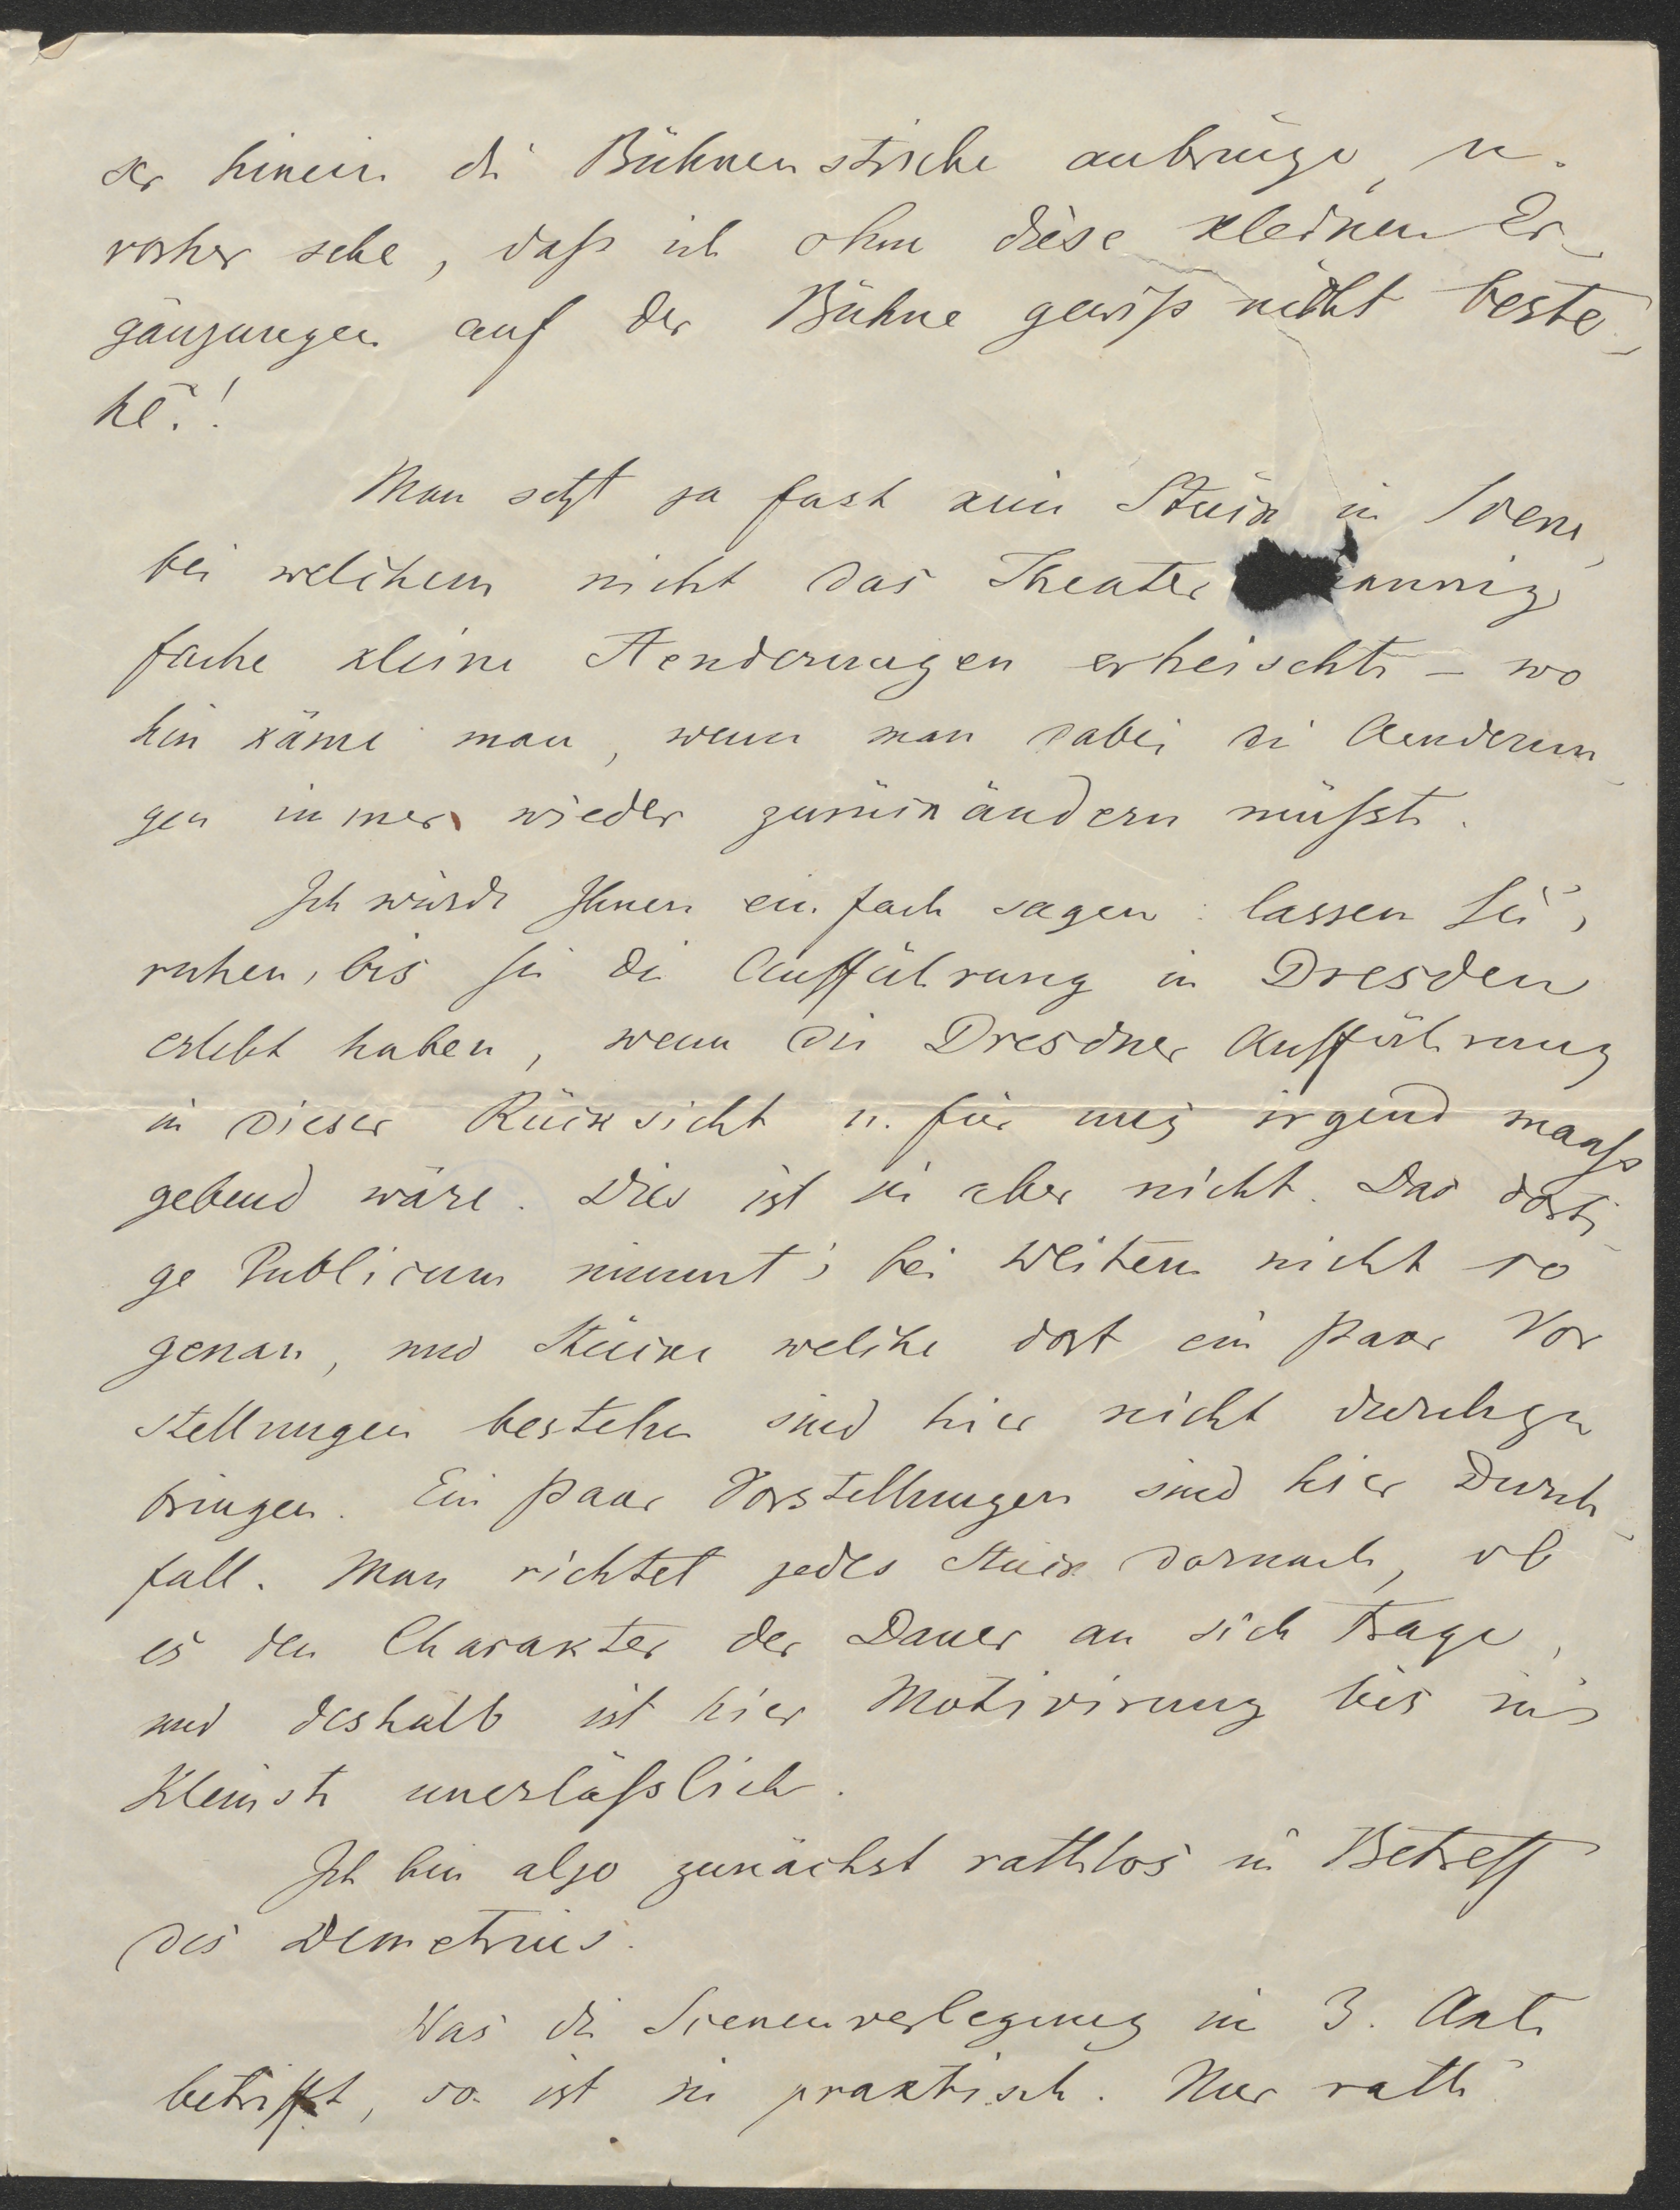 ser hinein die Bühnenstriche anbringe, u.
vorher sehe, daß ich ohne diese kleinen Er-
gänzungen auf der Bühne gewiß nicht beste-
he.!
Man setzt ja fast kein Stück in Scene,
bei welchem nicht das Theater mannig-
fache kleine Aenderungen erheischte – wo
hin käme man, wenn man dabei die Aenderun-
gen immer wieder zurückändern müßte.
Ich würde Ihnen einfach sagen: lassen Sie's
ruhen, bis Sie die Aufführung in Dresden
erlebt haben, wenn die Dresdner Aufführung
in dieser Rücksicht u. für uns irgend maaß
gebend wäre. Dies ist sie aber nicht. Das dorti-
ge Publicum nimmt's bei Weitem nicht so
genau, und Stücke welche dort ein paar Vor
stellungen bestehen sind hier nicht durchzu
bringen. Ein paar Vorstellungen sind hier Durch-
fall. Man richtet jedes Stück darnach, ob
es den Charakter der Dauer an sich trage,
und deshalb ist hier Motivirung bis in's
Kleinste unerläßlich.
Ich bin also zunächst rathlos in Betreff
des Demetrius.
Was die Scenenverlegung im 3. Akte
betrifft, so ist sie praktisch. Nur rathe